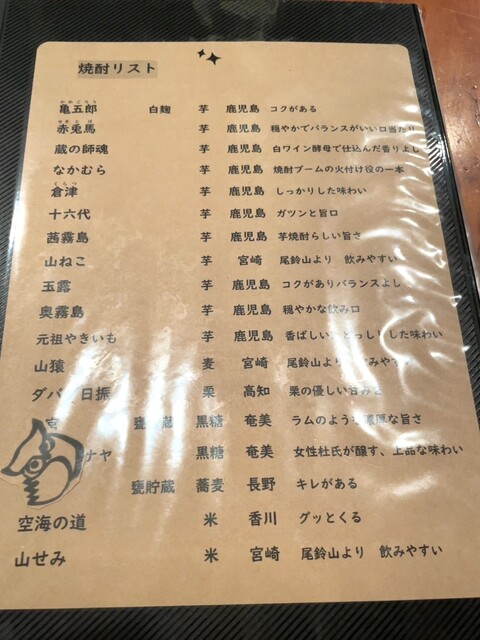 焼酎リスト
亀五郎 白麹 芋 鹿児島 コクがある
赤兎馬 芋 鹿児島 穏やかでバランスがいい口当たり
蔵の師魂 芋 鹿児島 白ワイン酵母で仕込んだ香りよし
なかむら 芋 鹿児島 焼酎ブームの火付け役の一本
倉津 芋 鹿児島 しっかりした味わい
十六代 芋 鹿児島 ガツンと旨口
茜霧島 芋 鹿児島 芋焼酎らしい旨さ
山ねこ 芋 宮崎 尾鈴山より 飲みやすい
玉露 芋 鹿児島 コクがありバランスよし
奥霧島 芋 鹿児島 穏やかな飲み口
元祖やきいも 芋 鹿児島 香ばしい した味わい
山猿 麦 宮崎 尾鈴山より みやすい
ダバ 日振 栗 高知 栗の優しい甘みさ
宮 甕 蔵 黒糖 奄美 ラムのよう 濃厚な旨さ
ナヤ 黒糖 奄美 女性杜氏が醸す、上品な味わい
甕貯蔵 蕎麦 長野 キレがある
空海の道 米 香川 グッとくる
山せみ 米 宮崎 尾鈴山より 飲みやすい